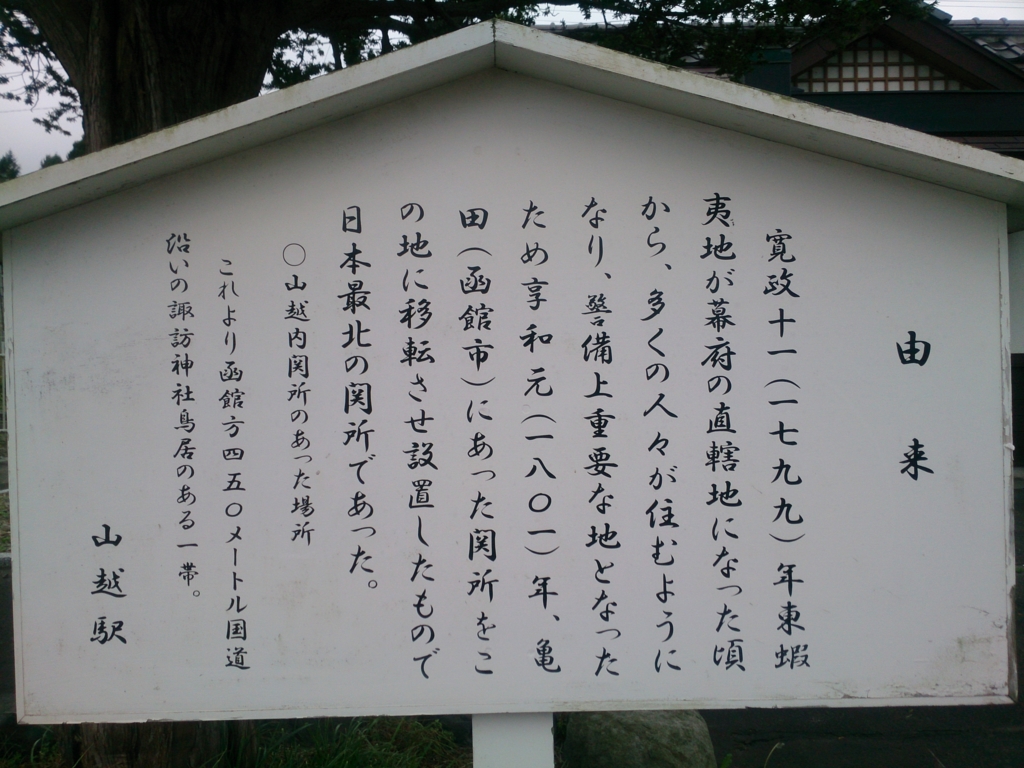 由来
寛政十一(一七九九)年東蝦
夷地が幕府の直轄地になった頃
から、多くの人々が住むように
なり、警備上重要な地となった
ため享和元(一八〇一)年、亀
田(函館市)にあった関所をこ
の地に移転させ設置したもので
日本最北の関所であった。
〇山越内関所のあった場所
これより函館方四五〇メートル国道
沿いの諏訪神社鳥居のある一帯。
山越駅